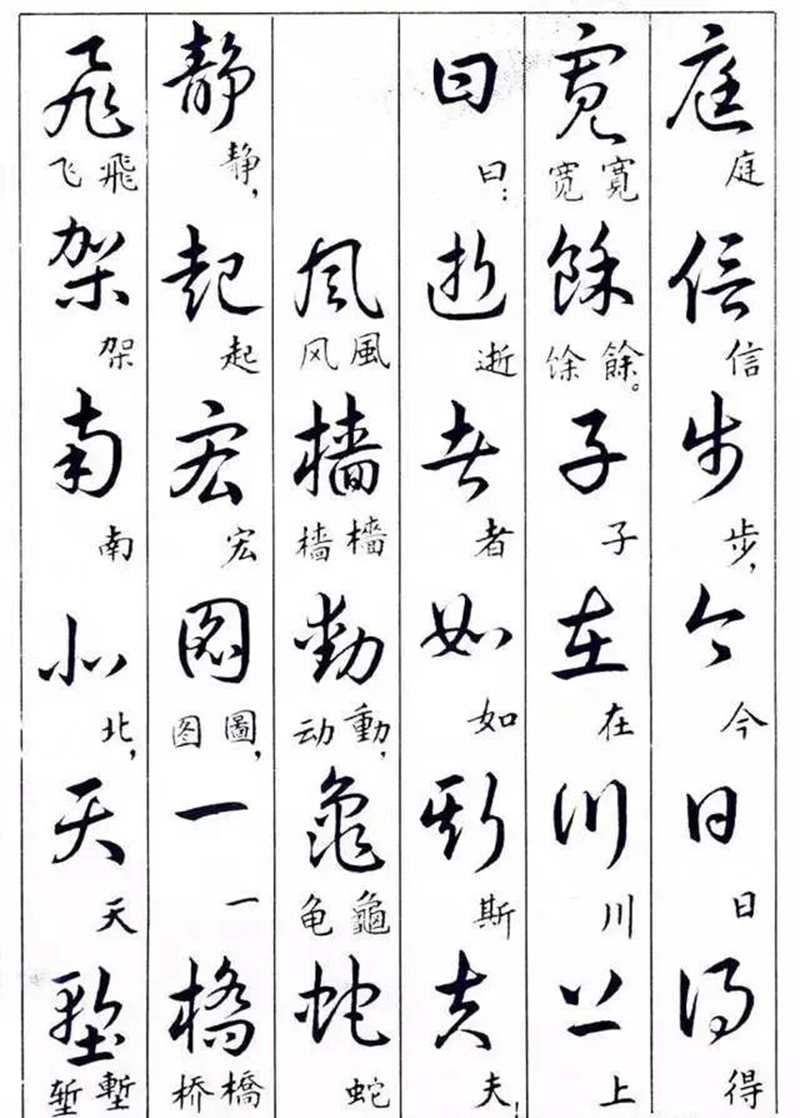 庭信步今日得
庭 信 步， 今 日 得
寬餘子在川上
寬 宽 餘。 馀 子 在 川 上
曰逝者如斯夫
曰： 逝 者 如 斯 夫！
風檣動龜蛇
風 风 檣 樯 動， 动 龜 龟 蛇
静起宏圖一橋
静， 起 宏 圖， 图 一 橋 桥
飛架南北天塹
飛 飞 架 南 北， 天 塹 堑